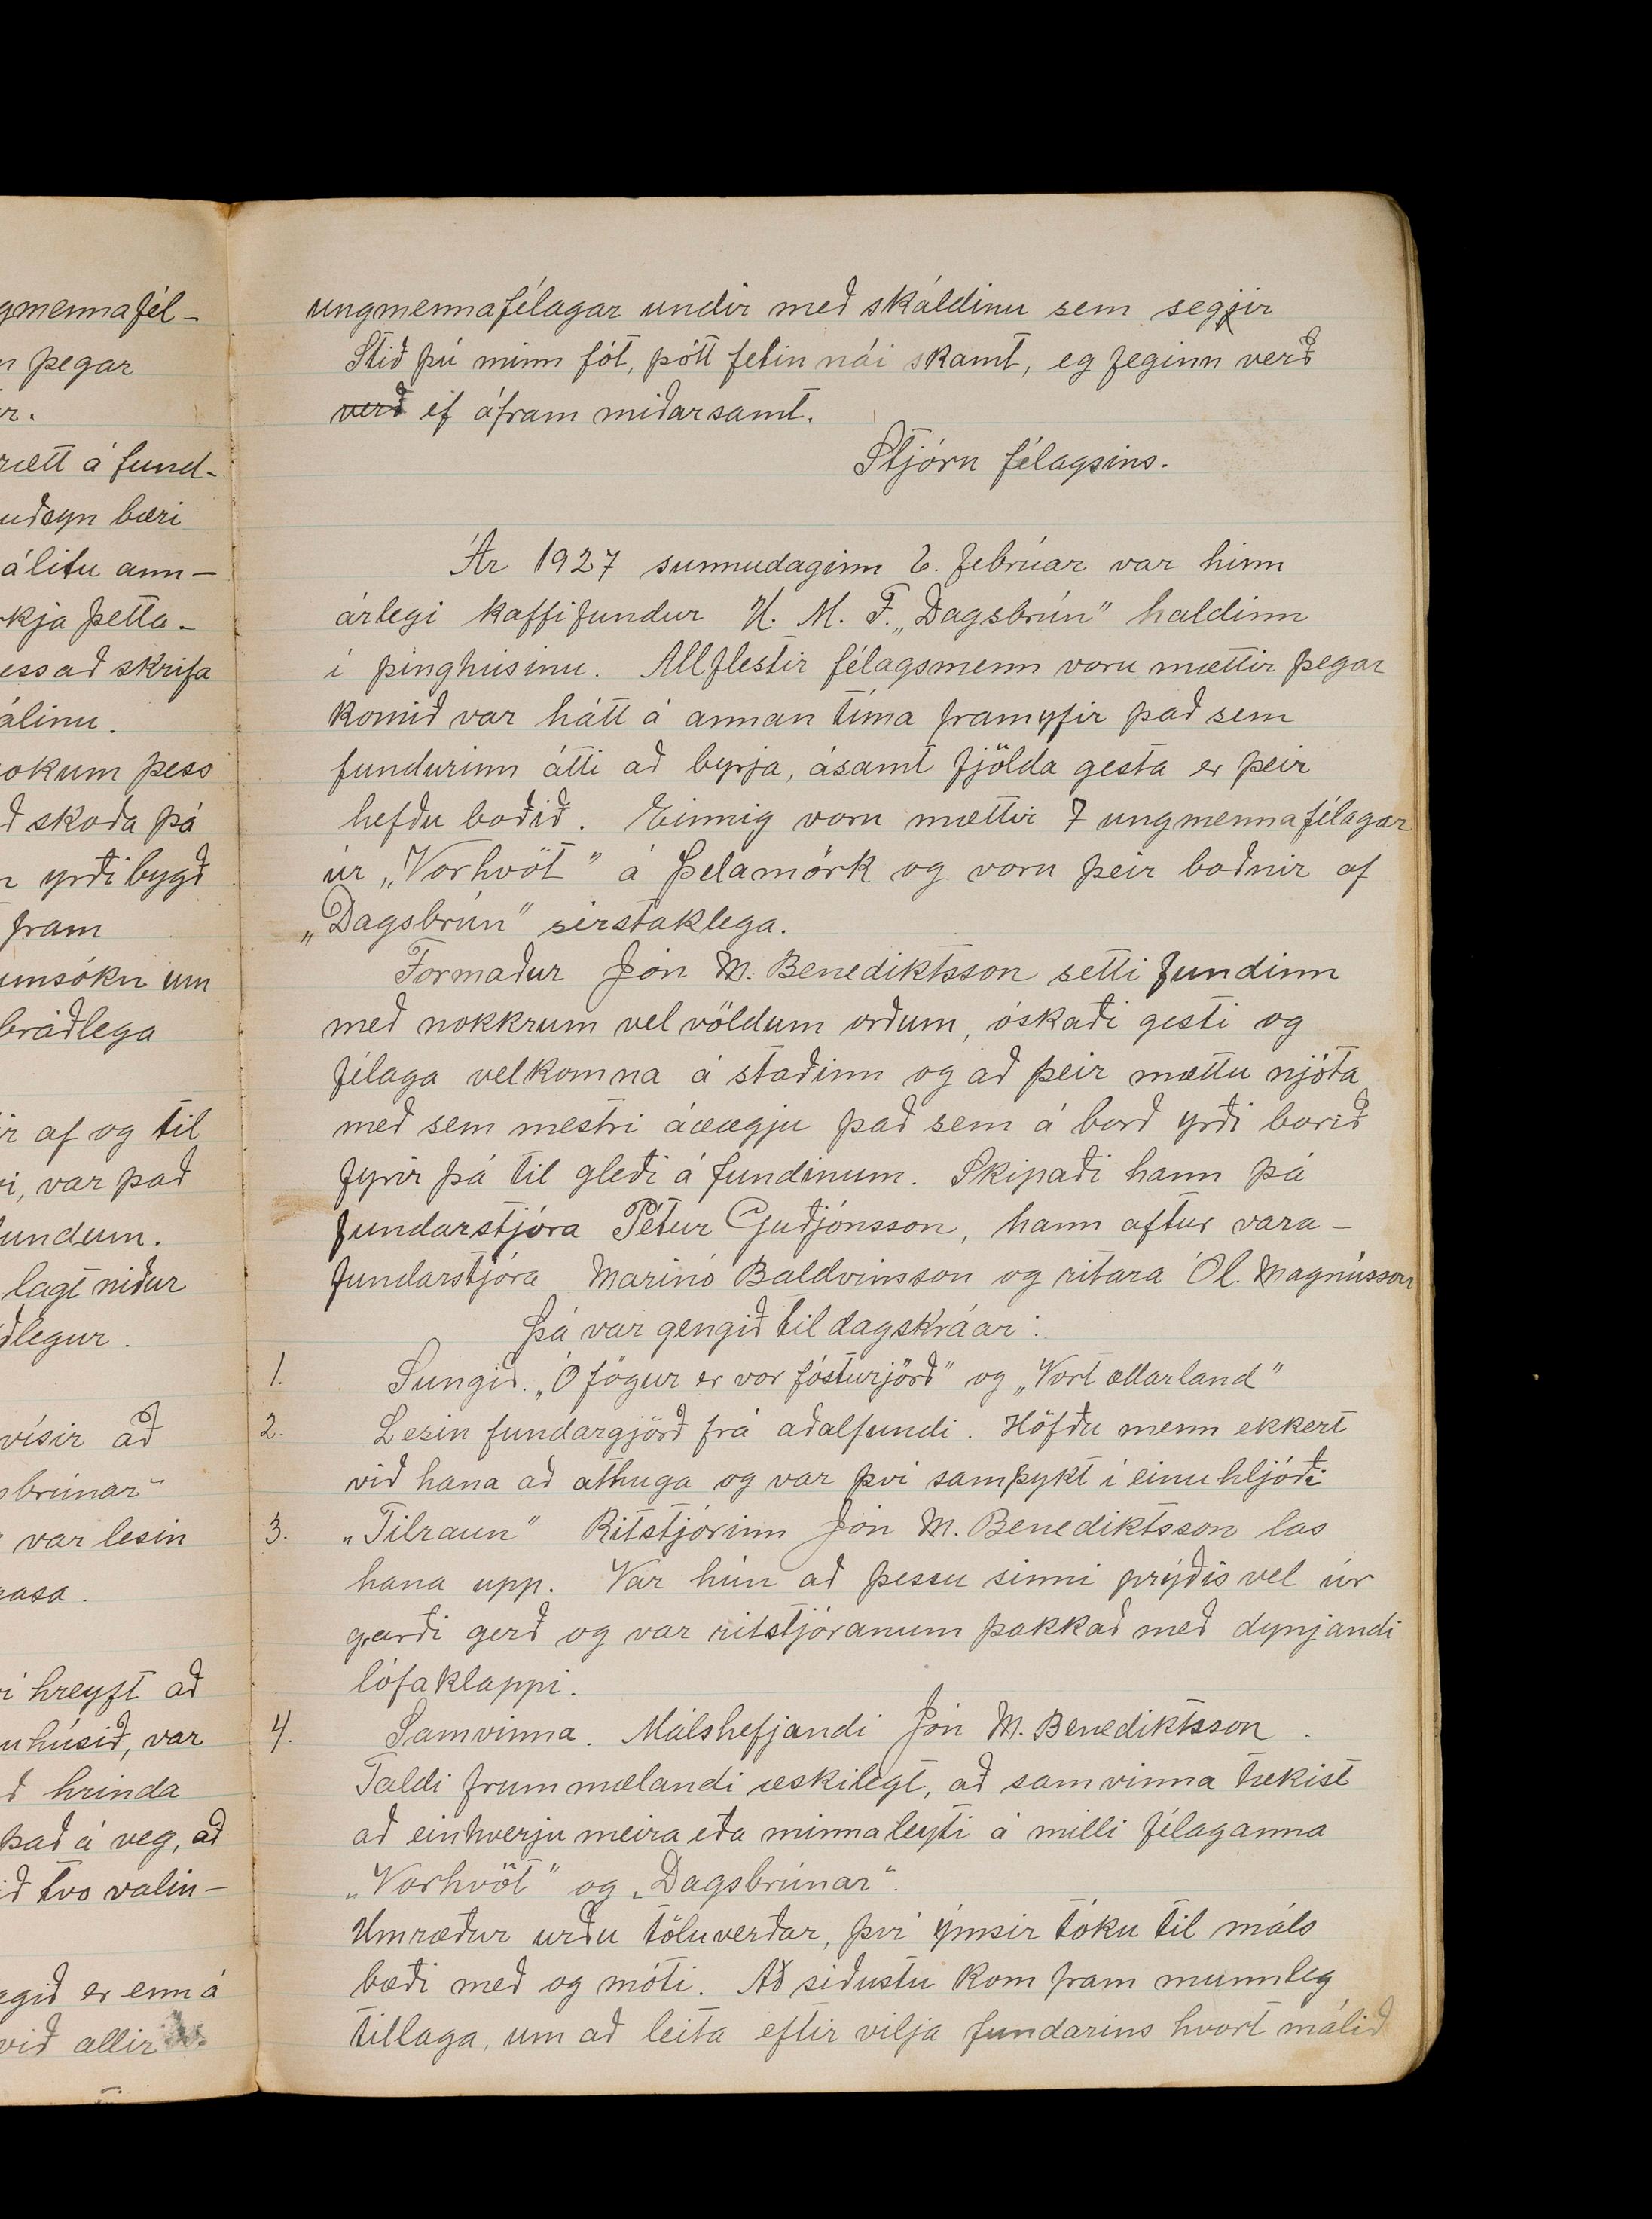 gmennafél-
n þegar
r.
rætt á fund-
uðsyn bæri
álitu ann-
kja þetta-
ess að skrifa
álinu.
okum þess
ð skoða þá
n yrði bygð
fram
umsókn um
bráðlega
ir af og til
i, var það
undum.
lagt niður
ðlegur.
vísir að
sbrúnar"
var lesin
rasa.
i hreyft að
uhúsið, var
ð hrinda
það á veg, að
ið tvo valin-
egið er enn á
við allir
ungmennafélagar undir með skáldinu sem segjir
Stið þú minn fót, þótt fetin nái skamt, eg feginn verð
verð ef áfram miðar samt.
Stjórn félagsins.
Ár 1927 sunnudaginn 6. febrúar var hinn
árlegi kaffifundur U. M. F. „Dagsbrún" haldinn
í þinghúsinu. Allflestir félagsmenn voru mættir þegar
komið var hátt á annan tíma framyfir það sem
fundurinn átti að byrja, ásamt fjölda gesta er þeir
hefðu boðið. Einnig voru mættir 7 ungmennafélagar
úr „Vorhvöt" á Þelamörk og voru þeir boðnir af
„Dagsbrún" sérstaklega.
Formaður Jón M. Benediktsson setti fundinn
með nokkrum vel völdum orðum, óskaði gesti og
félaga velkomna á staðinn og að þeir mættu njóta
með sem mestri ánægju það sem á borð yrði borið
fyrir þá til gleði á fundinum. Skipaði hann þá
fundarstjóra Pétur Guðjónsson, hann aftur vara-
fundarstjóra Marinó Baldvinsson og ritara Ól. Magnússon
Þá var gengið til dagskráar:
1. Sungið. „Ó fögur er vor fósturjörð" og „Vort ættarland"
2. Lesin fundargjörð frá aðalfundi. Höfðu menn ekkert
við hana að athuga og var því samþykt í einu hljóði
3. „Tilraun" Ritstjórinn Jón M. Benediktsson las
hana upp. Var hún að þessu sinni prýðis vel úr
garði gerð og var ritstjóranum þakkað með dynjandi
lófaklappi.
4. Samvinna. Málshefjandi Jón M. Benediktsson.
Taldi frummælandi æskilegt, að samvinna tækist
að einhverju meira eða minna leyti á milli félaganna
„Vorhvöt" og „Dagsbrúnar".
Umræður urðu töluverðar, því ýmsir tóku til máls
bæði með og móti. Að síðustu kom fram munnleg
tillaga, um að leita eftir vilja fundarins hvort málið